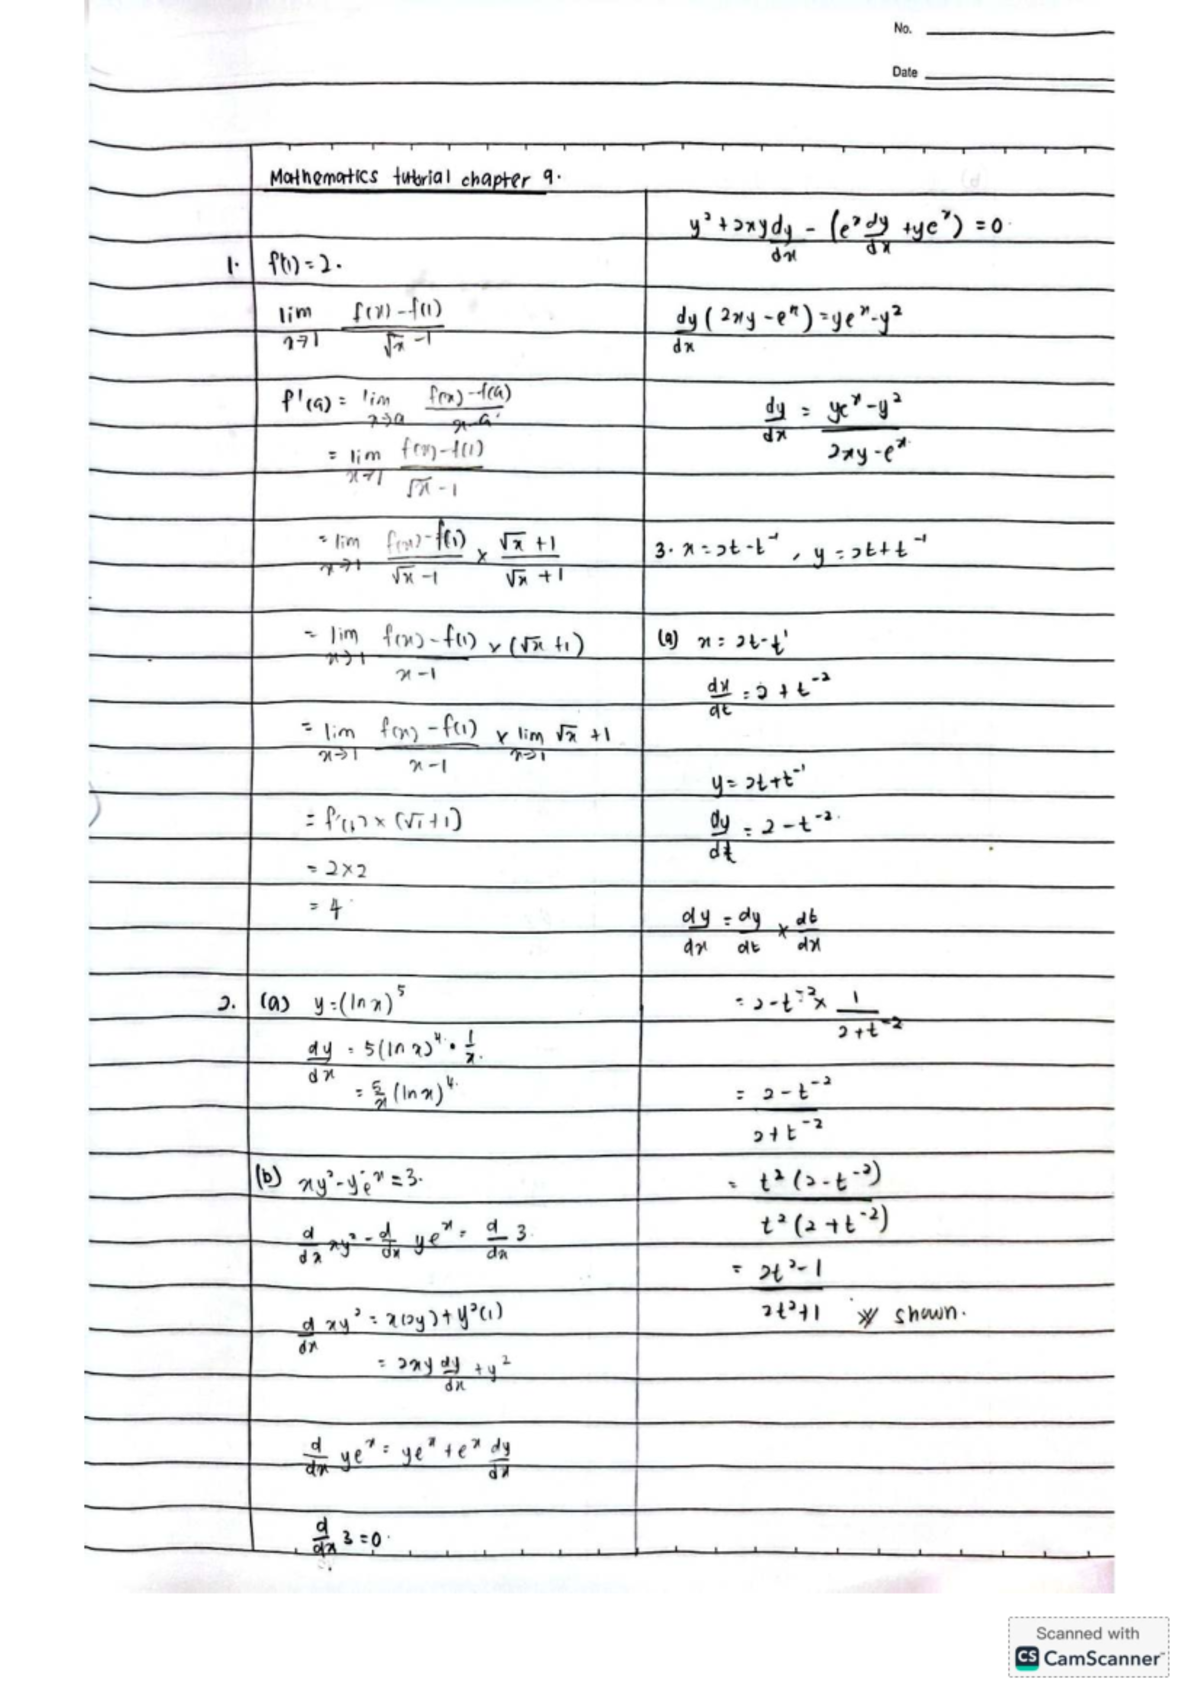 No.
Date
Mathematics tutorial chapter 9.
1. f'(1) = 2.
lim x→1 f(x) - f(1) / √x - 1
f'(a) = lim x→a f(x) - f(a) / x - a
= lim x→1 f(x) - f(1) / √x - 1
= lim x→1 f(x) - f(1) / √x - 1 × √x + 1 / √x + 1
= lim x→1 f(x) - f(1) / x - 1 × (√x + 1)
= lim x→1 f(x) - f(1) / x - 1 × lim x→1 √x + 1
= f'(1) × (√1 + 1)
= 2 × 2
= 4
2. (a) y = (ln x)^5
dy/dx = 5(ln x)^4 • 1/x.
= 5/x (ln x)^4.
(b) xy² - ye^x = 3.
d/dx xy² - d/dx ye^x = d/dx 3.
d/dx xy² = x(2y) + y²(1)
= 2xy dy/dx + y²
d/dx ye^x = ye^x + e^x dy/dx
d/dx 3 = 0.
y² + 2xy dy/dx - (e^x dy/dx + ye^x) = 0.
dy/dx (2xy - e^x) = ye^x - y²
dy/dx = ye^x - y² / 2xy - e^x
3. x = 2t - t^-1 , y = 2t + t^-1
(a) x = 2t - t^-1
dx/dt = 2 + t^-2
y = 2t + t^-1
dy/dt = 2 - t^-2.
dy/dx = dy/dt × dt/dx
= 2 - t^-2 × 1 / 2 + t^-2
= 2 - t^-2 / 2 + t^-2
= t² (2 - t^-2) / t² (2 + t^-2)
= 2t² - 1 / 2t² + 1 shown.
Scanned with
CS CamScanner